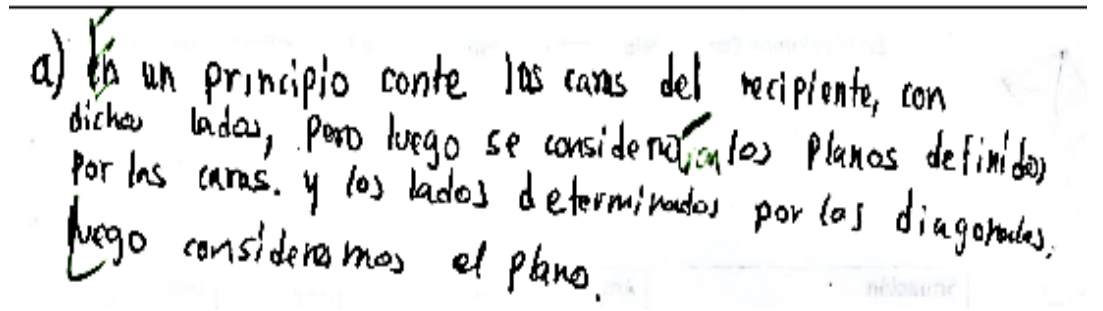 a) En un principio conte las caras del recipiente, con
dichos lados, Pero luego se consideraron los planos definidos
Por las caras. y los lados determinados por las diagonales.
Luego consideramos el plano.